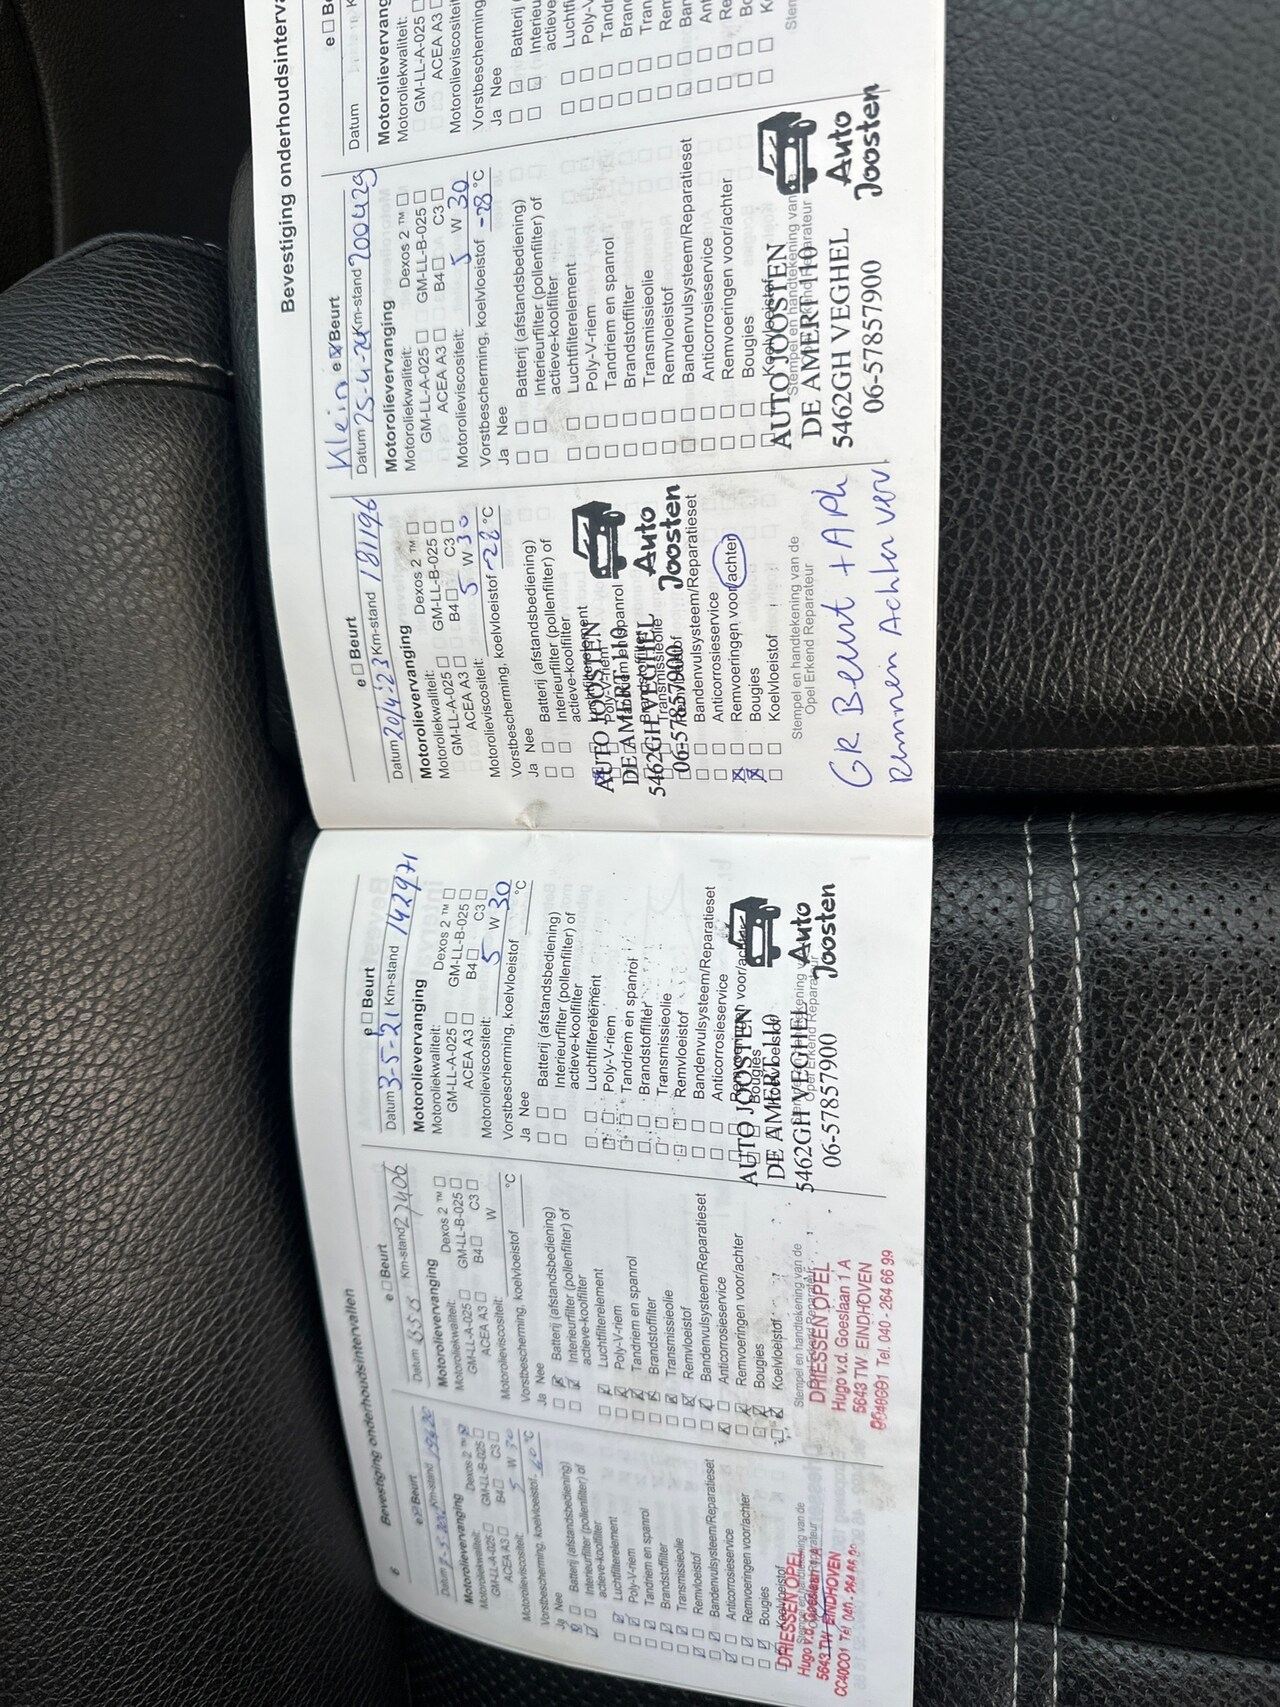 6
Bevestiging onderhoudsintervallen
Beurt
Datum
Km-stand
Motorolievervanging
Motoroliekwaliteit:
Dexos 2 ™
GM-LL-A-025
GM-LL-B-025
ACEA A3
B4
C3
Motorolieviscositeit: 5 W 30
Vorstbescherming, koelvloeistof
°C
Ja Nee
Batterij (afstandsbediening)
Interieurfilter (pollenfilter) of
actieve-koolfilter
Luchtfilterelement
Poly-V-riem
Tandriem en spanrol
Brandstoffilter
Transmissieolie
Remvloeistof
Bandenvulsysteem/Reparatieset
Anticorrosieservice
Remvoeringen voor/achter
Bougies
Koelvloeistof
Stempel en handtekening van de
Opel Erkend Reparateur
DRIESSEN OPEL
Hugo v.d. Goeslaan 1 A
5643 TW EINDHOVEN
e Beurt
Datum
Km-stand 27406
Motorolievervanging
Motoroliekwaliteit:
Dexos 2 ™
GM-LL-A-025
GM-LL-B-025
ACEA A3
B4
C3
Motorolieviscositeit:
W
Vorstbescherming, koelvloeistof
°C
Ja Nee
Batterij (afstandsbediening)
Interieurfilter (pollenfilter) of
actieve-koolfilter
Luchtfilterelement
Poly-V-riem
Tandriem en spanrol
Brandstoffilter
Transmissieolie
Remvloeistof
Bandenvulsysteem/Reparatieset
Anticorrosieservice
Remvoeringen voor/achter
Bougies
Koelvloeistof
Stempel en handtekening van de
Opel Erkend Reparateur
DRIESSEN OPEL
Hugo v.d. Goeslaan 1 A
5643 TW EINDHOVEN
Tel. 040 - 264 66 99
e Beurt
Datum 3-5-21 Km-stand 142971
Motorolievervanging
Motoroliekwaliteit:
Dexos 2 ™
GM-LL-A-025
GM-LL-B-025
ACEA A3
B4
C3
Motorolieviscositeit: 5 W 30
Vorstbescherming, koelvloeistof
°C
Ja Nee
Batterij (afstandsbediening)
Interieurfilter (pollenfilter) of
actieve-koolfilter
Luchtfilterelement
Poly-V-riem
Tandriem en spanrol
Brandstoffilter
Transmissieolie
Remvloeistof
Bandenvulsysteem/Reparatieset
Anticorrosieservice
Remvoeringen voor/achter
Bougies
Koelvloeistof
AUTO JOOSTEN
DE AMERT 110
5462GH VEGHEL
06-57857900
Auto
Joosten
e Beurt
Datum 20/4-23 Km-stand 181196
Motorolievervanging
Motoroliekwaliteit:
Dexos 2 ™
GM-LL-A-025
GM-LL-B-025
ACEA A3
B4
C3
Motorolieviscositeit: 5 W 30
Vorstbescherming, koelvloeistof -28 °C
Ja Nee
Batterij (afstandsbediening)
Interieurfilter (pollenfilter) of
actieve-koolfilter
Luchtfilterelement
Poly-V-riem
Tandriem en spanrol
Brandstoffilter
Transmissieolie
Remvloeistof
AUTO JOOSTEN
DE AMERT 110
5462GH VEGHEL
06-57857900
Auto
Joosten
Bandenvulsysteem/Reparatieset
Anticorrosieservice
Remvoeringen voor/achter
Bougies
Koelvloeistof
Stempel en handtekening van de
Opel Erkend Reparateur
GR Beurt + APk
Remmen Achter verv.
Bevestiging onderhoudsinterva
Klein e Beurt
Datum 25-4-24 Km-stand 200429
Motorolievervanging
Motoroliekwaliteit:
Dexos 2 ™
GM-LL-A-025
GM-LL-B-025
ACEA A3
B4
C3
Motorolieviscositeit: 5 W 30
Vorstbescherming, koelvloeistof -28 °C
Ja Nee
Batterij (afstandsbediening)
Interieurfilter (pollenfilter) of
actieve-koolfilter
Luchtfilterelement
Poly-V-riem
Tandriem en spanrol
Brandstoffilter
Transmissieolie
Remvloeistof
Bandenvulsysteem/Reparatieset
Anticorrosieservice
Remvoeringen voor/achter
Bougies
Koelvloeistof
Stempel en handtekening van
Reparateur
AUTO JOOSTEN
DE AMERT 110
5462GH VEGHEL
06-57857900
Auto
Joosten
e Be
Datum
Motorolievervang
Motoroliekwaliteit:
GM-LL-A-025
ACEA A3
Motorolieviscositei
Vorstbescherming
Ja Nee
Batterij (
Interieu
actieve
Luchtfi
Poly-V
Tand
Bran
Tran
Rem
Ban
Ant
Re
Bo
Ko
Stem